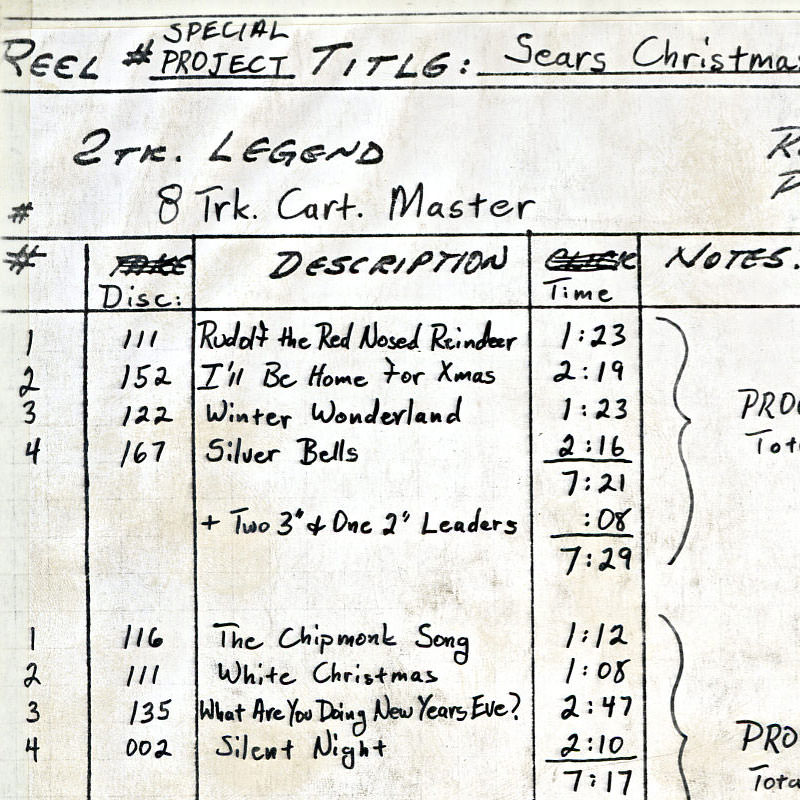 REEL # SPECIAL PROJECT TITLE: Sears Christmas
2TK. LEGEND
8 Trk. Cart. Master
#
# Disc: DESCRIPTION Time NOTES.
1 111 Rudolf the Red Nosed Reindeer 1:23
2 152 I'll Be Home For Xmas 2:19
3 122 Winter Wonderland 1:23
4 167 Silver Bells 2:16
7:21
+ Two 3" & One 2" Leaders :08
7:29
1 116 The Chipmonk Song 1:12
2 111 White Christmas 1:08
3 135 What Are You Doing New Years Eve? 2:47
4 002 Silent Night 2:10
7:17